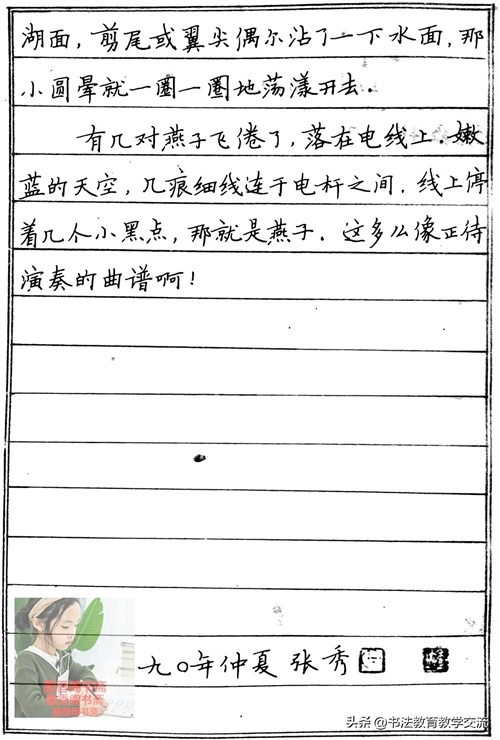 湖面，剪尾或翼尖偶尔沾了一下水面，那
小圆晕就一圈一圈地荡漾开去．
有几对燕子飞倦了，落在电线上．嫩
蓝的天空，几痕细线连于电杆之间．线上停
着几个小黑点，那就是燕子．这多么像正待
演奏的曲谱啊！
九〇年仲夏 张秀
头条@书法教育教学交流